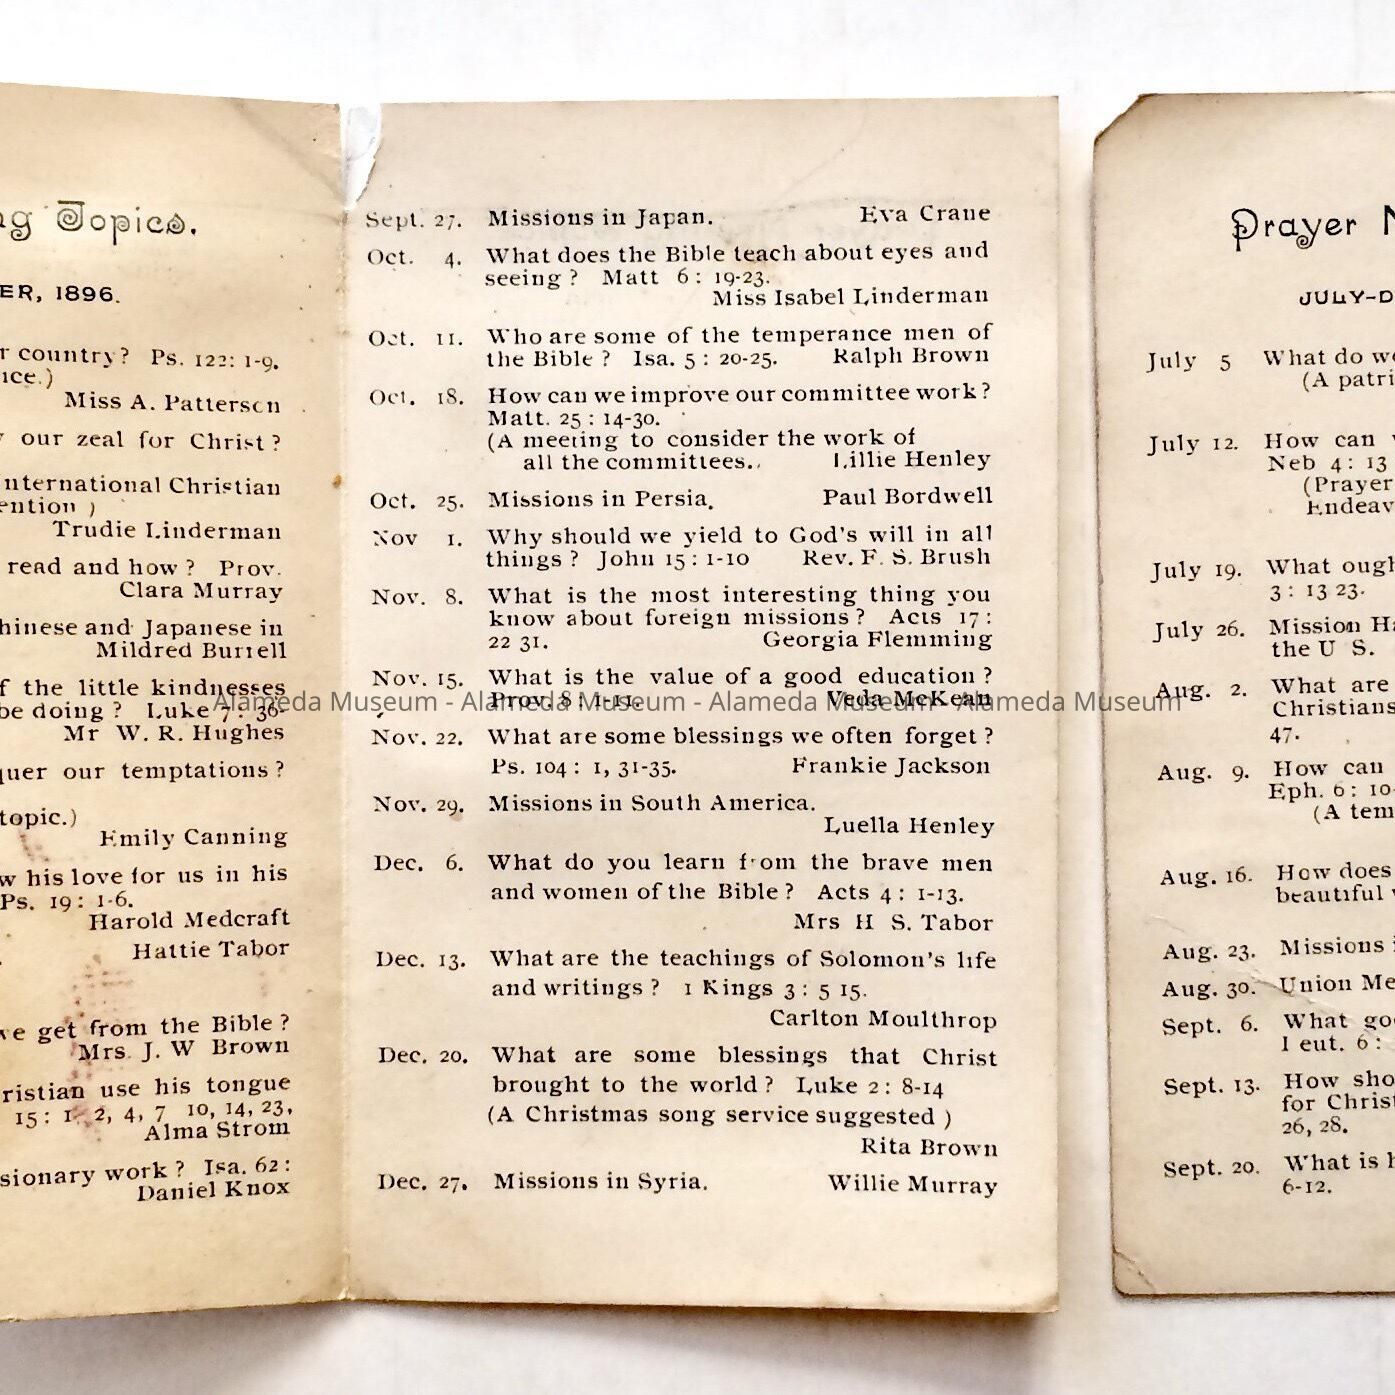 ng Topics.
ER, 1896.
r country? Ps. 122: 1-9.
ice.)
Miss A. Patterson
our zeal for Christ?
nternational Christian
ention )
Trudie Linderman
read and how? Prov.
Clara Murray
hinese and Japanese in
Mildred Burrell
f the little kindnesses
be doing? Luke 7: 36-
Mr W. R. Hughes
quer our temptations?
topic.)
Emily Canning
w his love for us in his
Ps. 19: 1-6.
Harold Medcraft
Hattie Tabor
we get from the Bible?
Mrs J. W Brown
ristian use his tongue
15: 1 2, 4, 7 10, 14, 23,
Alma Strom
sionary work? Isa. 62:
Daniel Knox
Sept. 27. Missions in Japan. Eva Crane
Oct. 4. What does the Bible teach about eyes and
seeing? Matt 6: 19-23.
Miss Isabel Linderman
Oct. 11. Who are some of the temperance men of
the Bible? Isa. 5: 20-25. Ralph Brown
Oct. 18. How can we improve our committee work?
Matt. 25: 14-30.
(A meeting to consider the work of
all the committees.. Lillie Henley
Oct. 25. Missions in Persia. Paul Bordwell
Nov 1. Why should we yield to God's will in all
things? John 15: 1-10 Rev. F. S. Brush
Nov. 8. What is the most interesting thing you
know about foreign missions? Acts 17:
22 31. Georgia Flemming
Nov. 15. What is the value of a good education?
Prov. 8: 1-11. Veda McKean
Alameda Museum - Alameda Museum - Alameda Museum - Alameda Museum
Nov. 22. What are some blessings we often forget?
Ps. 104: 1, 31-35. Frankie Jackson
Nov. 29. Missions in South America.
Luella Henley
Dec. 6. What do you learn from the brave men
and women of the Bible? Acts 4: 1-13.
Mrs H S. Tabor
Dec. 13. What are the teachings of Solomon's life
and writings? 1 Kings 3: 5 15.
Carlton Moulthrop
Dec. 20. What are some blessings that Christ
brought to the world? Luke 2: 8-14
(A Christmas song service suggested )
Rita Brown
Dec. 27. Missions in Syria. Willie Murray
Prayer M
JULY-D
July 5 What do we
(A patri
July 12. How can
Neb 4: 13
(Prayer
Endeav
July 19. What ough
3: 13 23.
July 26. Mission Ha
the U S.
Aug. 2. What are
Christians
47.
Aug. 9. How can
Eph. 6: 10-
(A tem
Aug. 16. How does
beautiful
Aug. 23. Missions i
Aug. 30. Union Me
Sept. 6. What goo
Deut. 6:
Sept. 13. How sho
for Christ
26, 28.
Sept. 20. What is h
6-12.